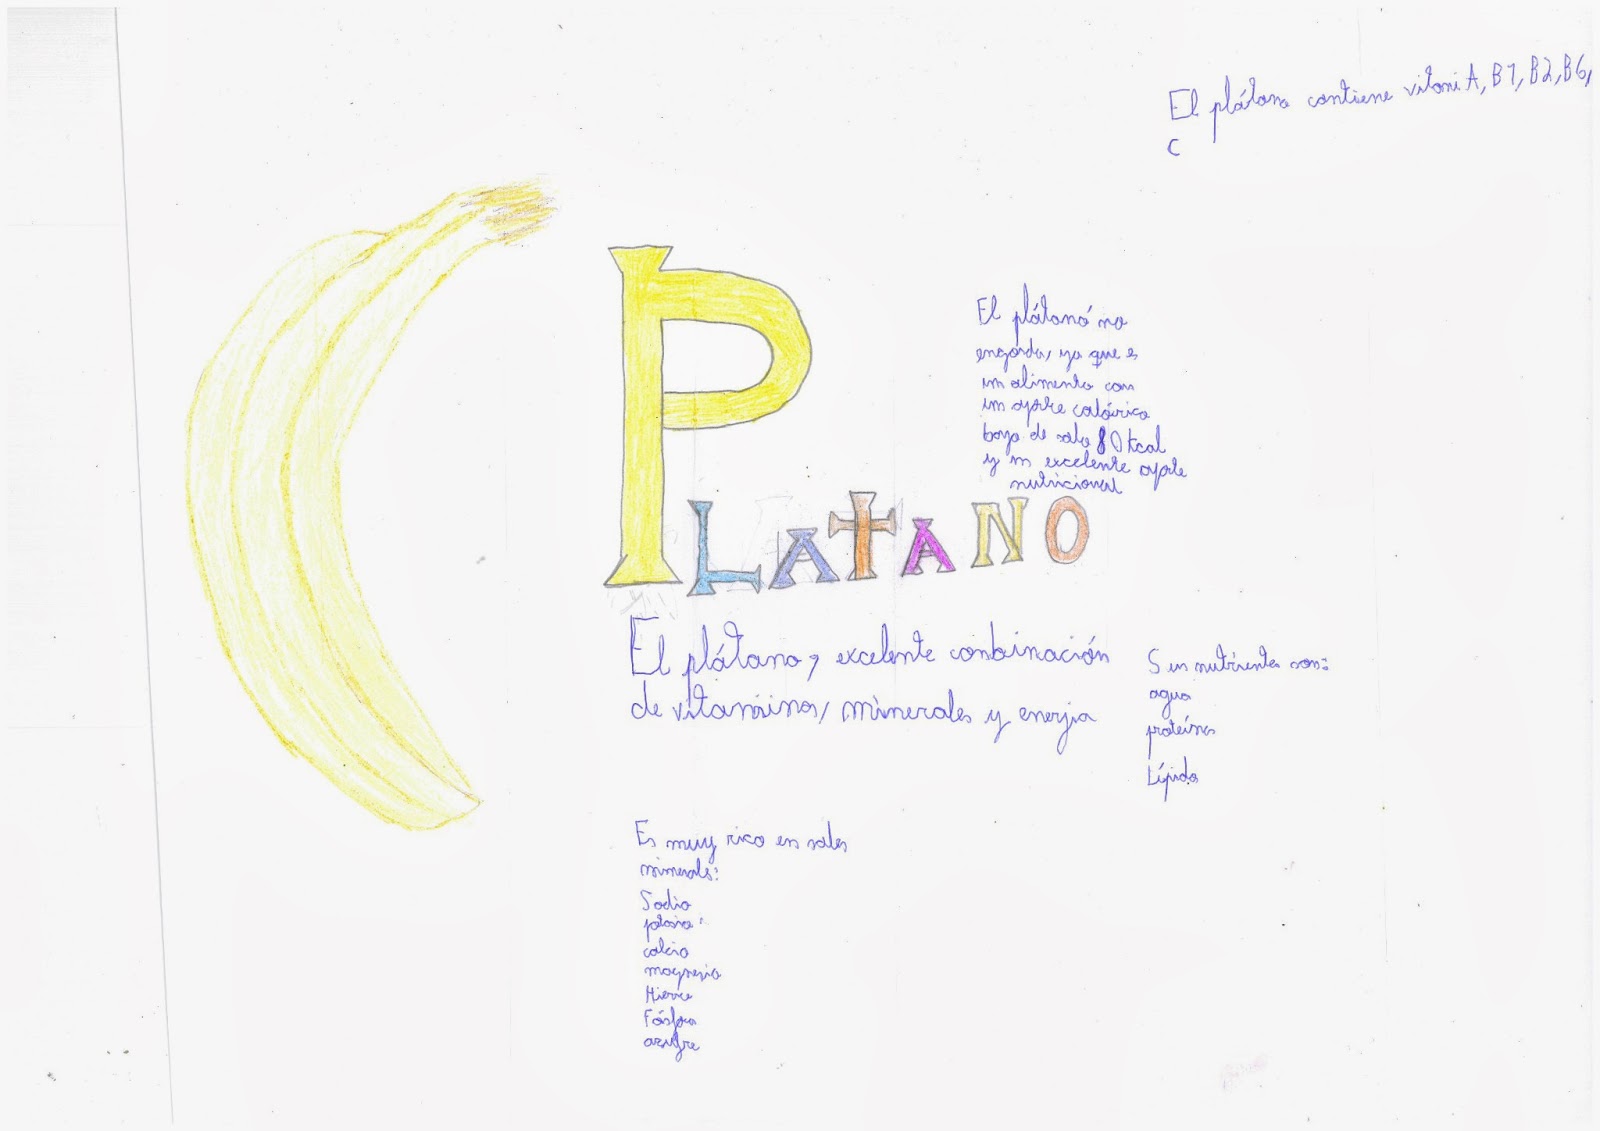 El plátano contiene vitami A, B1, B2, B6,
C
El plátano no
engorda, ya que es
un alimento con
un aporte calórico
bajo de solo 80 kcal
y un excelente aporte
nutricional
PLATANO
El plátano, excelente combinación
de vitaminas, minerales y energia
Sus nutrientes son:
agua
proteínas
Lípidos
Es muy rico en sales
minerals:
Sodio
potasio
calcio
magnesio
Hierro
Fósforo
azufre